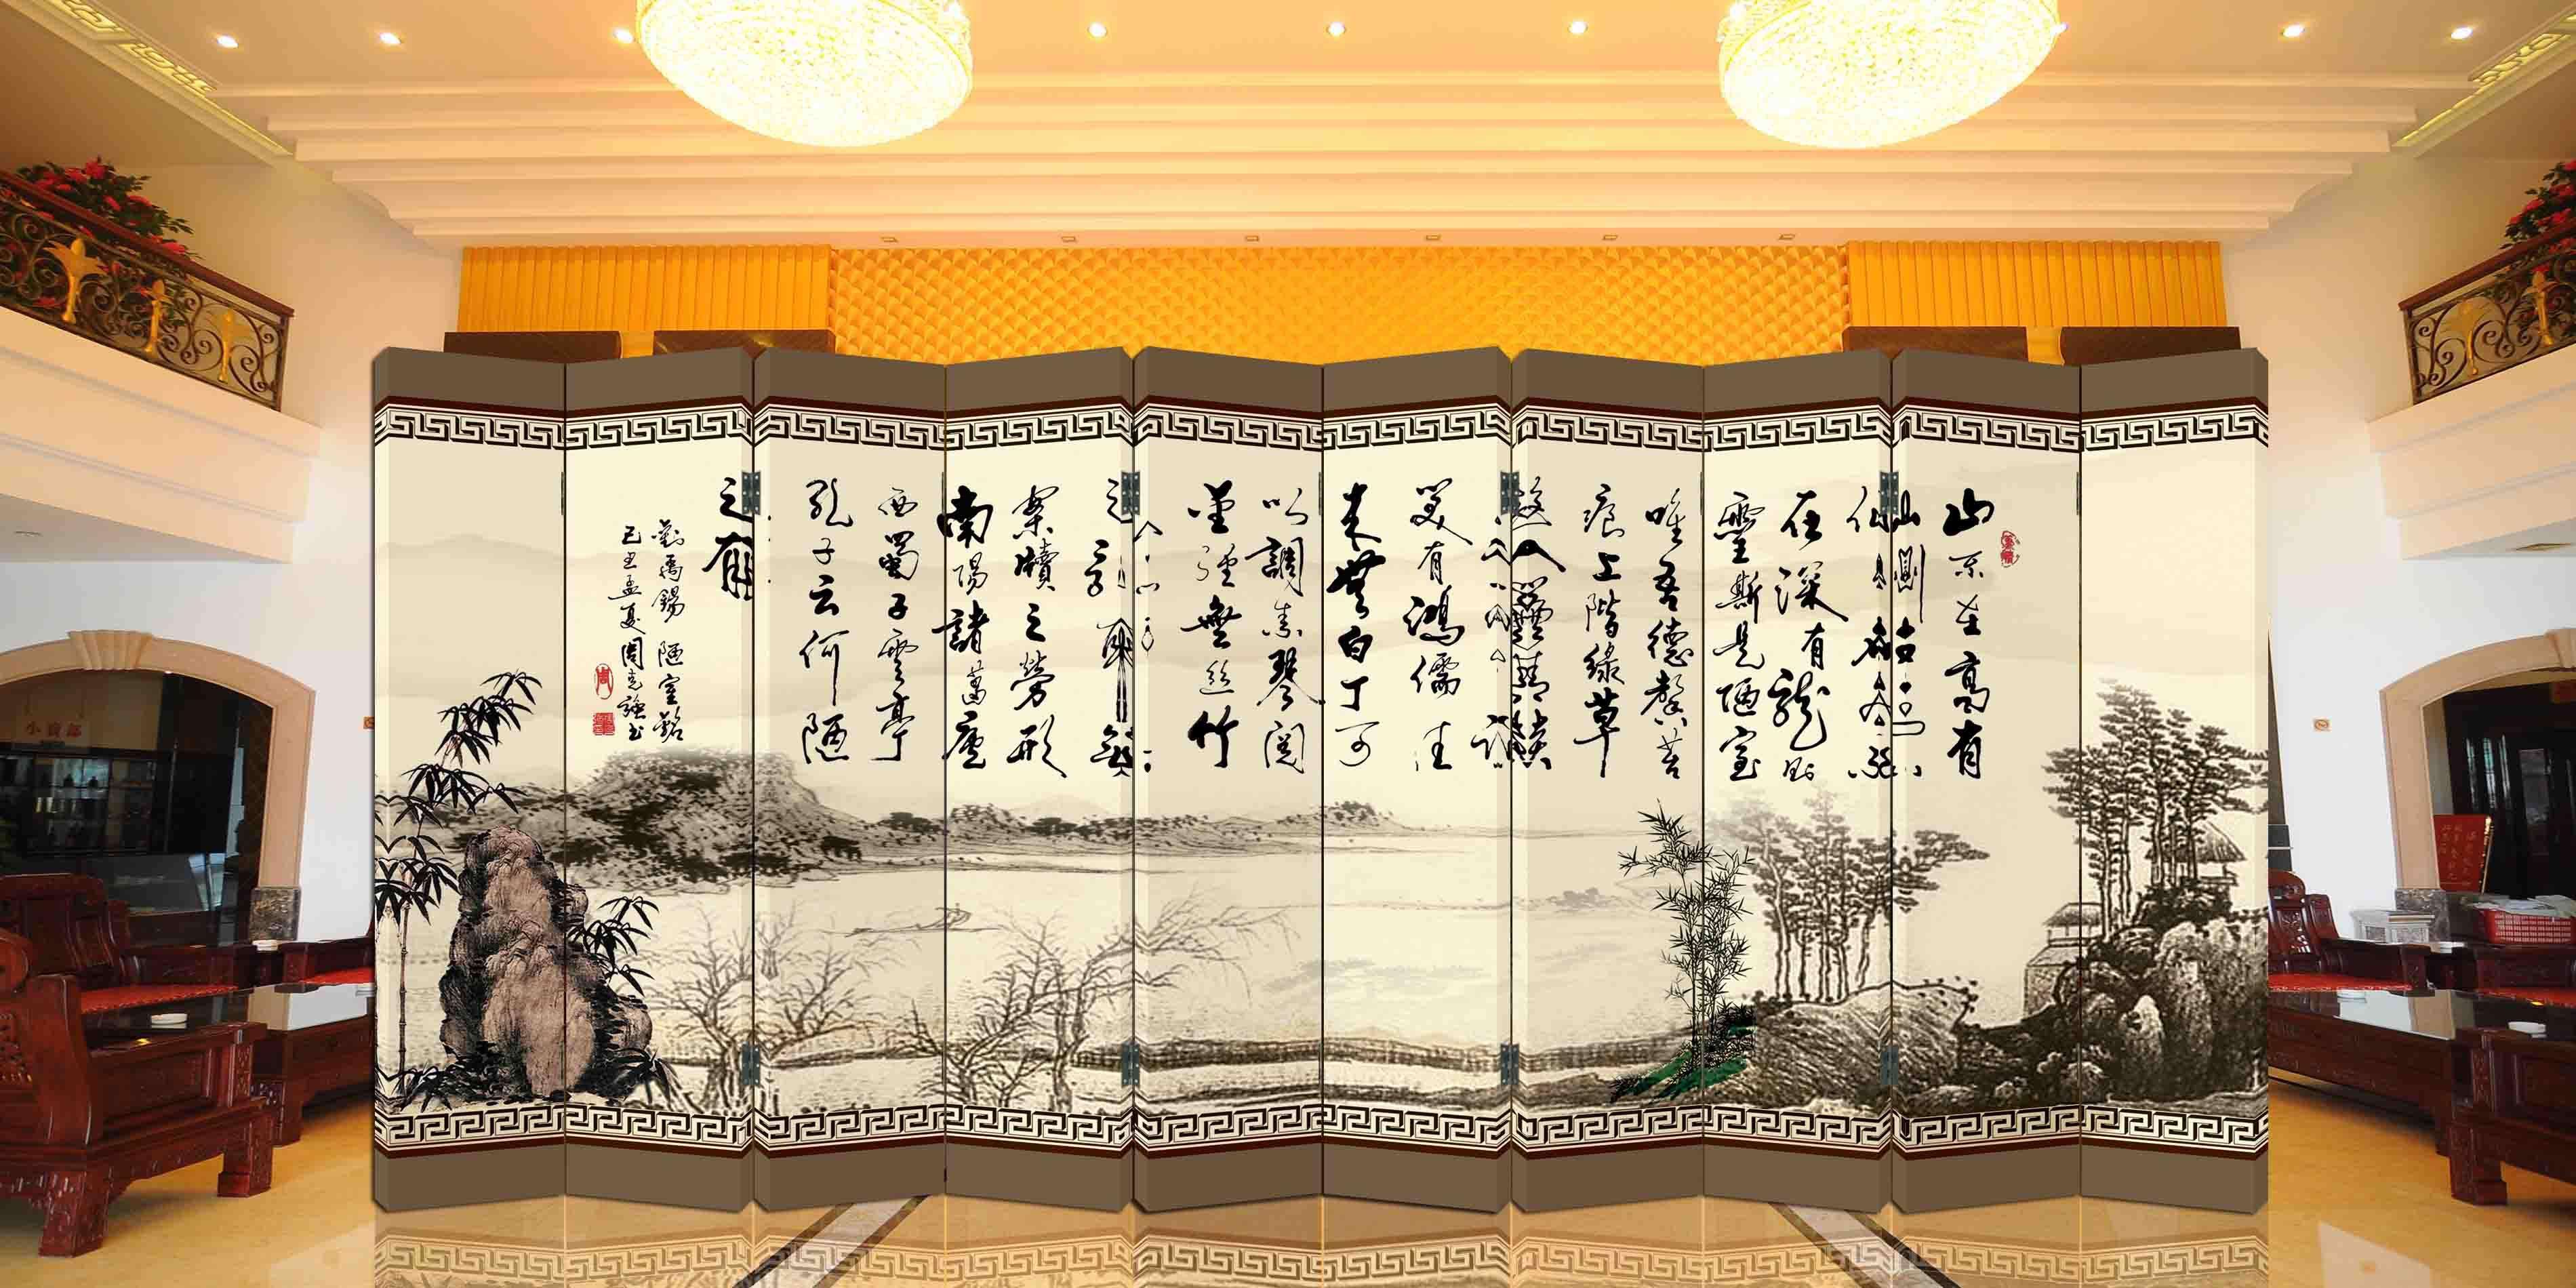 山不在高有
在深有龍則
靈斯是陋室
唯吾德馨苔
痕上階綠草
笑有鴻儒往
來無白丁可
以調素琴閱
金經無絲竹
案牘之勞形
南陽諸葛廬
西蜀子雲亭
孔子云何陋
之有
劉禹錫 陋室銘
己丑孟夏周克強書
周
小賣部